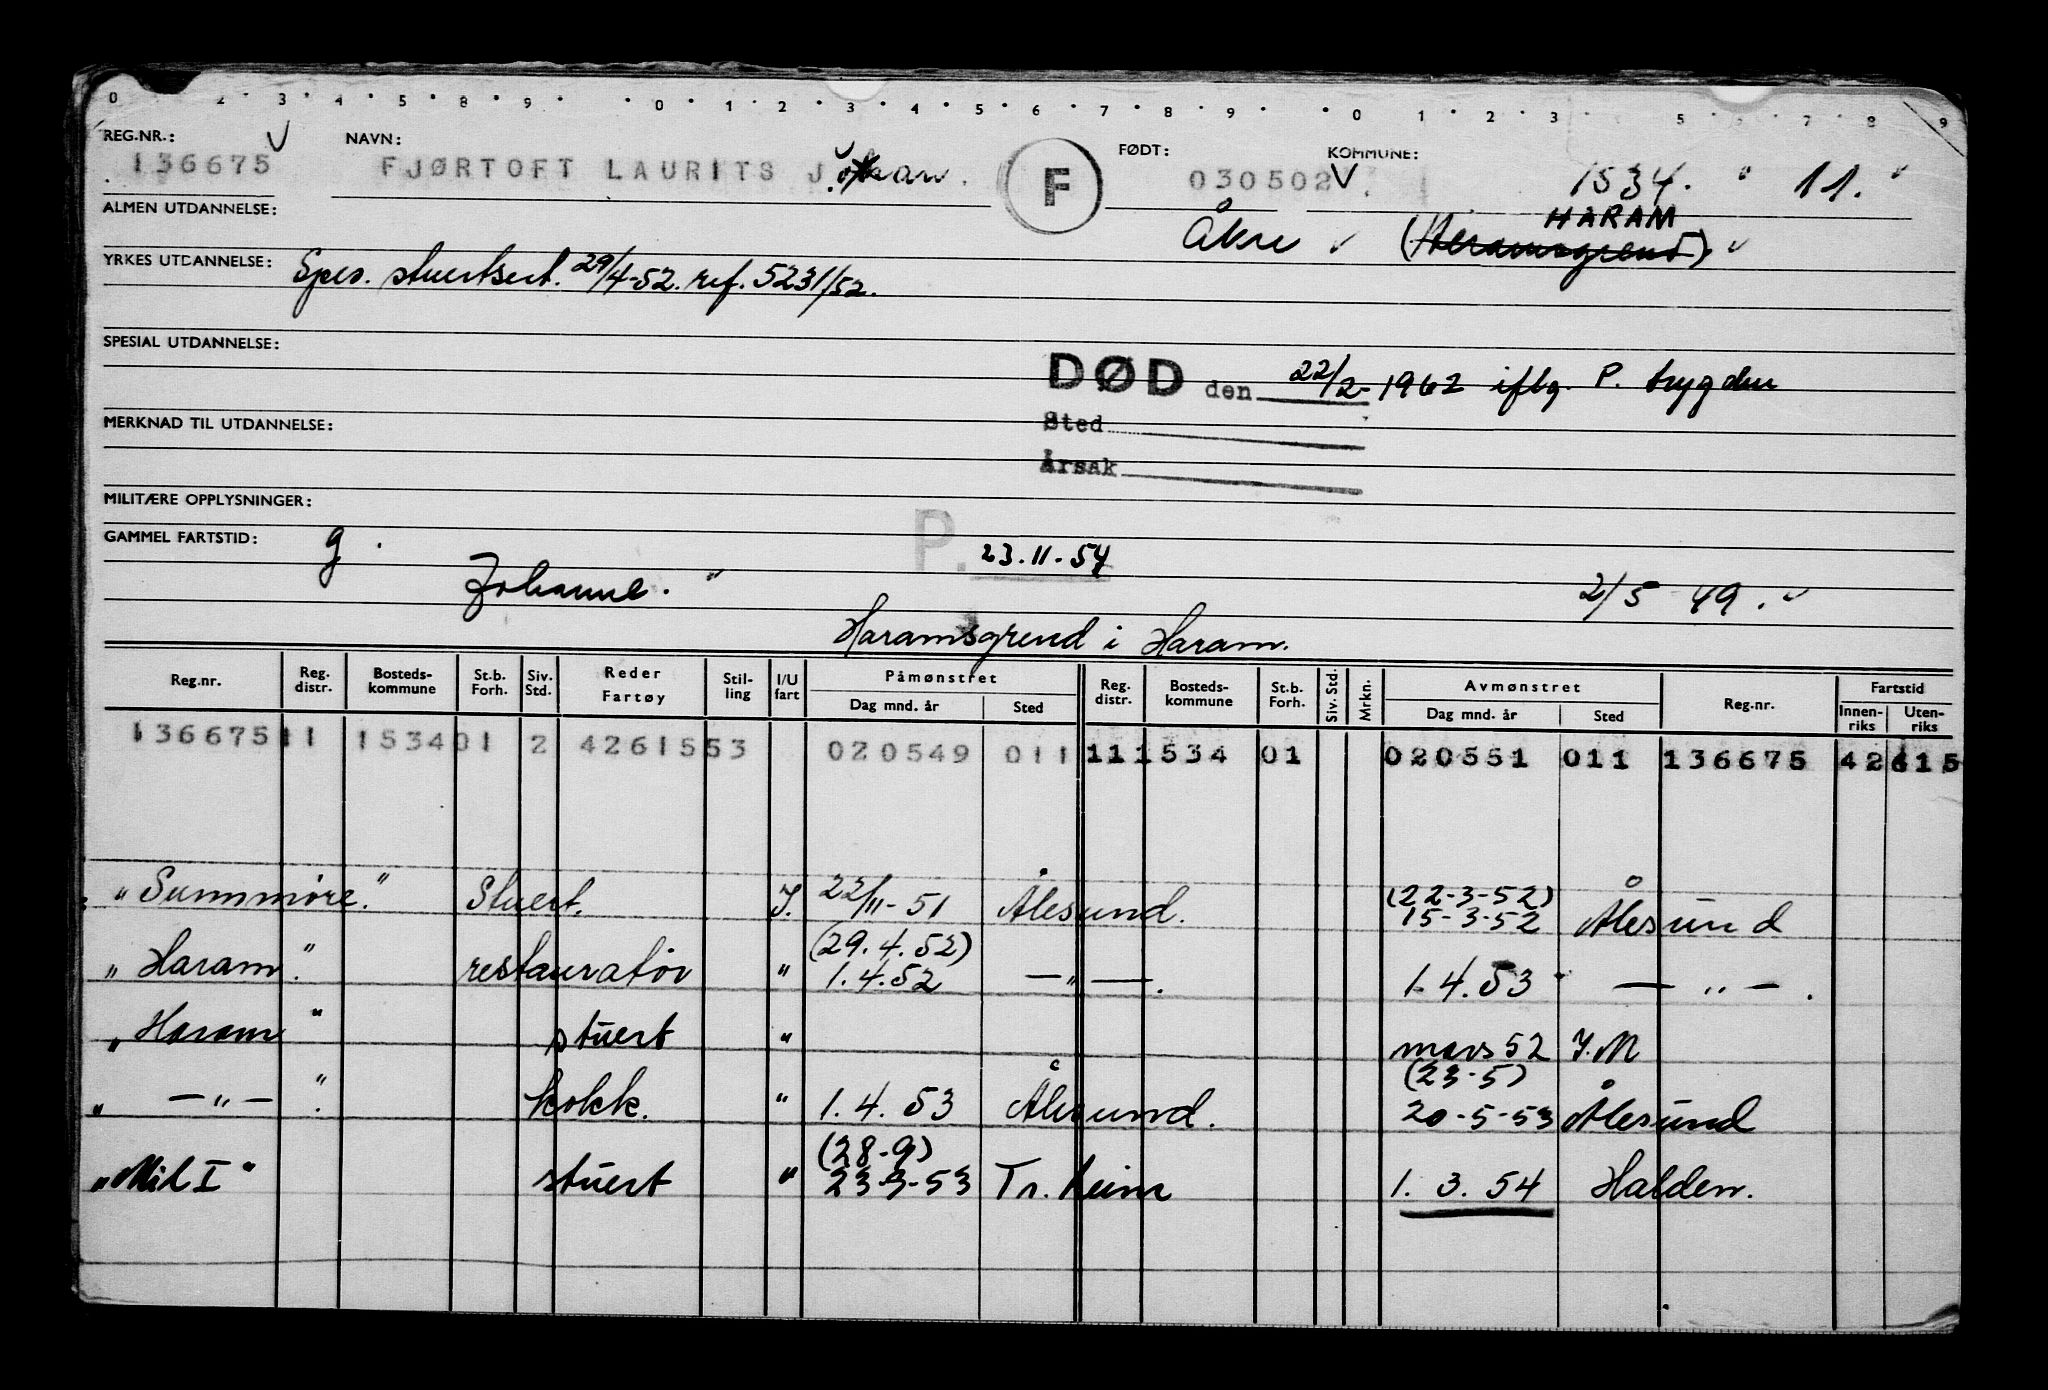 0 2 3 4 5 8 9 0 1 2 3 4 5 6 7 8 9 0 1 2 3 5 6 7 8 9
REG.NR.: NAVN: FØDT: KOMMUNE:
136675 FJØRTOFT LAURITS Johan. F 030502 1534. 11.
ALMEN UTDANNELSE: Åkre (Haramsgrend) HARAM
YRKES UTDANNELSE: Spes. stuertsert. 29/4-52. ref. 5231/52.
SPESIAL UTDANNELSE:
DØD den 22/2-1962 iflg. P. trygden
MERKNAD TIL UTDANNELSE: Sted
Årsak
MILITÆRE OPPLYSNINGER:
GAMMEL FARTSTID: g. P. 23.11.54
Johanne." 2/5 49.
Haramsgrend i Haram.
Reg.nr. Reg. distr. Bosteds-kommune St.b. Forh. Siv. Std. Reder Fartøy Stil-ling I/U fart Påmønstret Dag mnd. år Sted Reg. distr. Bosteds-kommune St.b. Forh. Siv. Std. Mrkn. Avmønstret Dag mnd. år Sted Reg.nr. Fartstid Innen-riks Uten-riks
136675 11 1534 01 2 4261553 020549 011 11 1534 01 020551 011 136675 42615
"Sunnmöre." Stuert. I. 22/11-51 Ålesund. (22-3-52) 15-3-52 Ålesund
"Haram." restauratör " (29.4.52) 1.4.52 —"—. 1.4.53 —"—.
"Haram" stuert " mars 52 I.M
" —"— ". kokk. " 1.4.53 Ålesund. (23-5) 20-5-53 Ålesund
"Mil I" stuert " (28-9) 23-9-53 Tr.heim 1.3.54 Halden.